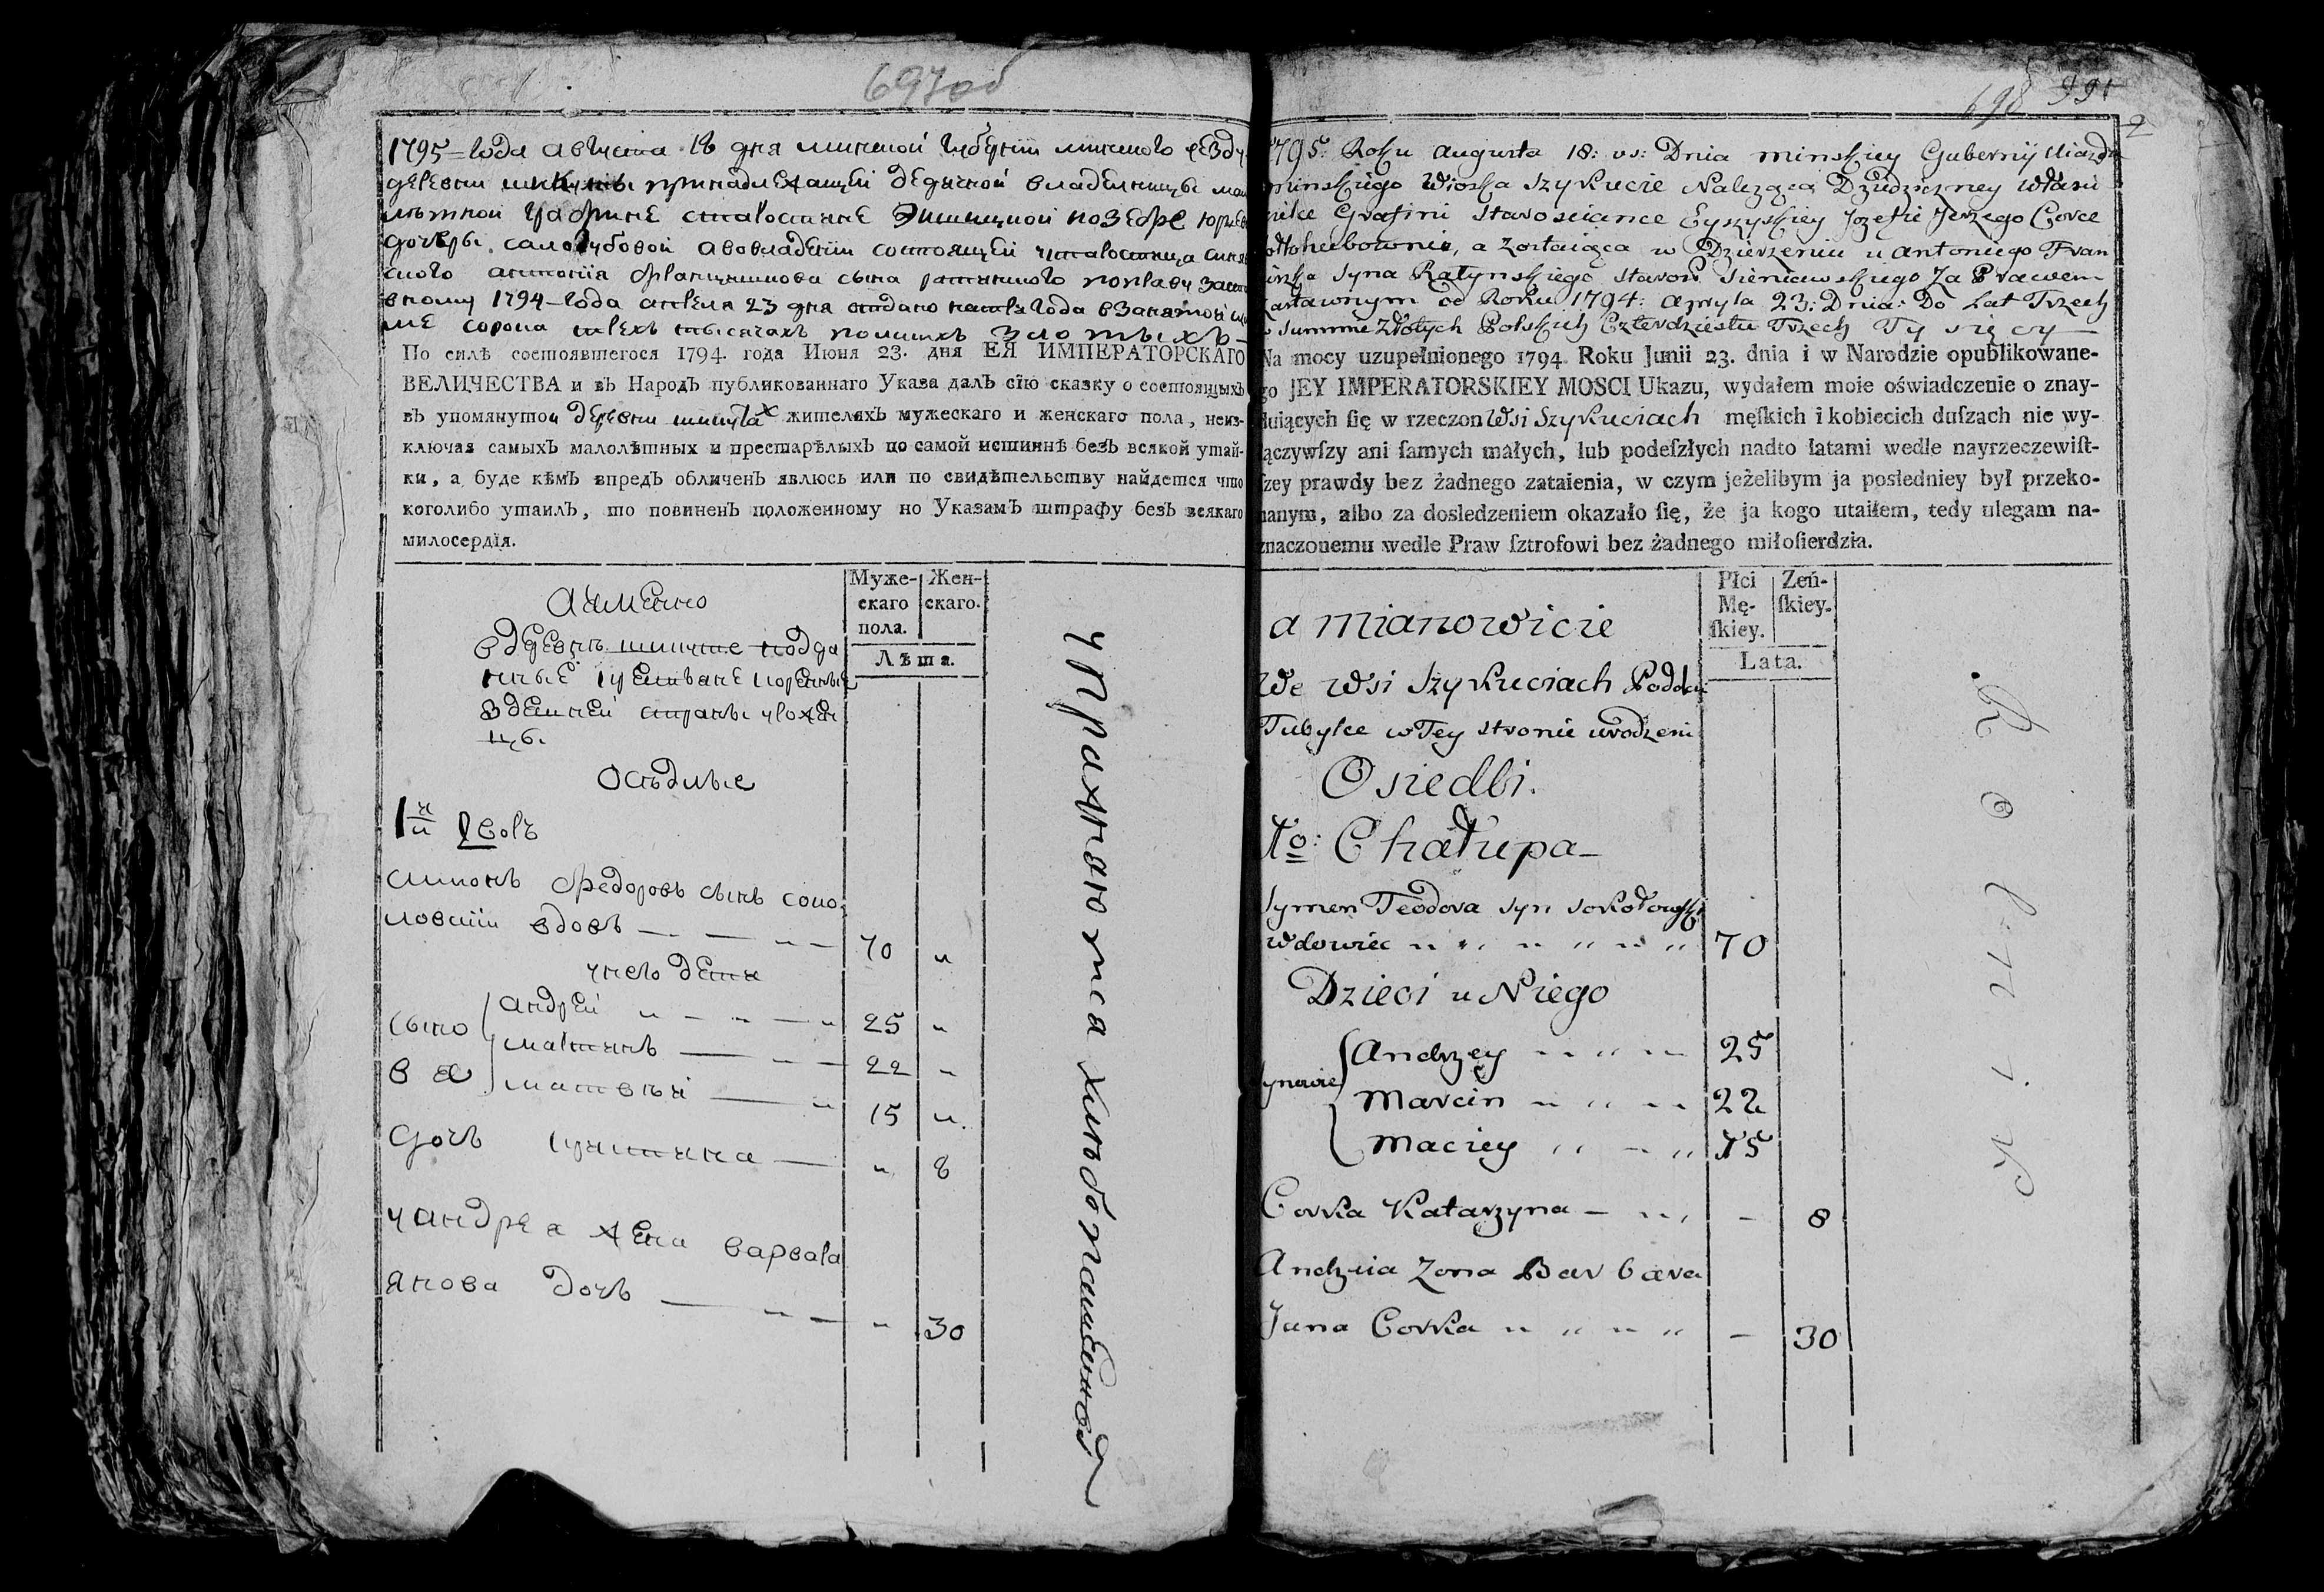 697об
1795 года августа 18 дня минской губернии минского уезду
деревни принадлежащей дедичной владелницы мало
летной графине старостине юрьев
дочери, а во владении состоящей у старостица
ского антонія францишкова сына ратынского по праву
вному 1794 года апреля 23 дня
сорока трехъ тысячахъ полскихъ злотыхъ
По силѣ состоявшегося 1794. года Июня 23. дня ЕЯ ИМПЕРАТОРСКАГО
ВЕЛИЧЕСТВА и въ Народъ публикованнаго Указа далъ сію сказку о состоящыхъ
въ упомянутой деревни жителяхъ мужескаго и женскаго пола, неиз-
ключая самыхъ малолѣтныхъ и престарѣлыхъ по самой истиннѣ безъ всякой утай-
ки, а буде кѣмъ впредъ обличенъ явлюсь или по свидѣтельству найдется что
коголибо утаилъ, то повиненъ положенному по Указамъ штрафу безъ всякаго
милосердія.
Муже-
скаго
пола.
Жен-
скаго.
Лѣта.
А имянно
в деревнѣ подда
нные крестьяне коренные
здешней страны урожен
цы
Осѣдлые
1й Дворъ
Симонъ Федоровъ сынъ соко
ловскій вдовъ 70
у него дети
сыно
вья
андрей 25
мартинъ 22
матвѣй 15
дочь 8
у андрея жена варвара
янова дочь 30
упражняются хлебопашеством
698 991
2
1795: Roku Augusta 18: vs: Dnia minskiey Gubernij Uiazdu
minskiego Wioska Szykucie Nalezgca Dziedziczney własci
cielce Grafini Starosciance Eyszyskiey Jozefie Jerzego Corce
a zostaiąca w Dzierzeniu u Antoniego Fran
ciszka syna Ratynskiego Starosc Sieniawskiego Za Prawem
Zastawnym od Roku 1794: Apryla 23: Dnia: Do Lat Trzech
w Summie Złotych Polskich Czterdziestu Trzech Tysięcy
Na mocy uzupełnionego 1794. Roku Junii 23. dnia i w Narodzie opublikowane-
go JEY IMPERATORSKIEY MOSCI Ukazu, wydałem moie oświadczenie o znay-
duiących ſię w rzeczon Wsi Szykuciach męſkich i kobiecich duſzach nie wy-
łączywſzy ani ſamych małych, lub podeſzłych nadto latami wedle nayrzeczewiſt-
ſzey prawdy bez żadnego zataienia, w czym jeżelibym ja posledniey był przeko-
nanym, albo za dosledzeniem okazało ſię, że ja kogo utaiłem, tedy ulegam na-
znaczonemu wedle Praw ſztrofowi bez żadnego miłoſierdzia.
Płci
Mę-
ſkiey.
Zeń-
ſkiey.
Lata.
a mianowicie
We Wsi Szykuciach Poddani
Tubylce w Tey stronie urodzeni
Osiedli.
1o: Chałupa
Symen Teodora syn Sokołowski
wdowiec 70
Dzieci u Niego
Synowie
Andrzey 25
Marcin 22
Maciey 15
Corka Katarzyna 8
Andrzeia Zona Barbara
Jana Corka 30
Rolnicy